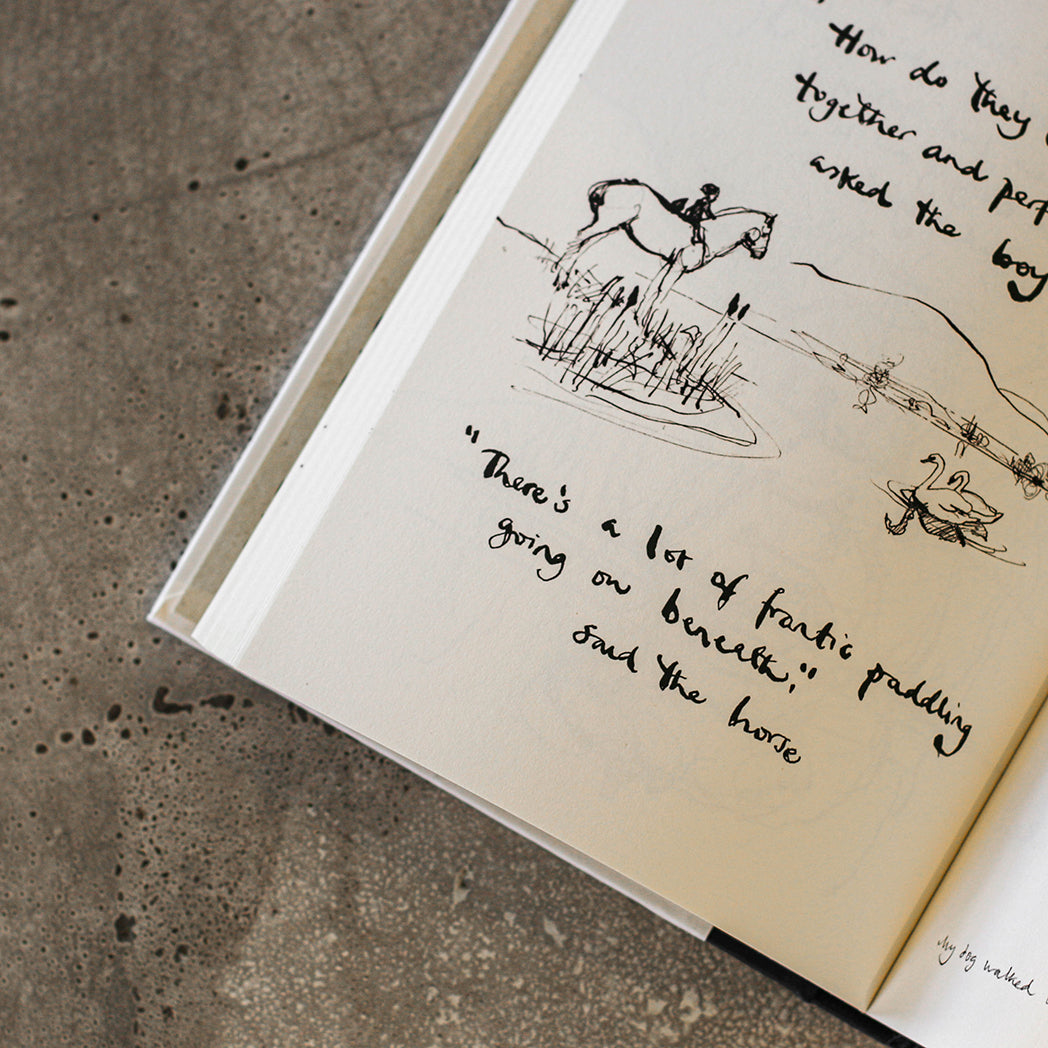 How do they
together and
asked the boy
"There's a lot of frantic paddling
going on beneath."
said the horse
My dog walked